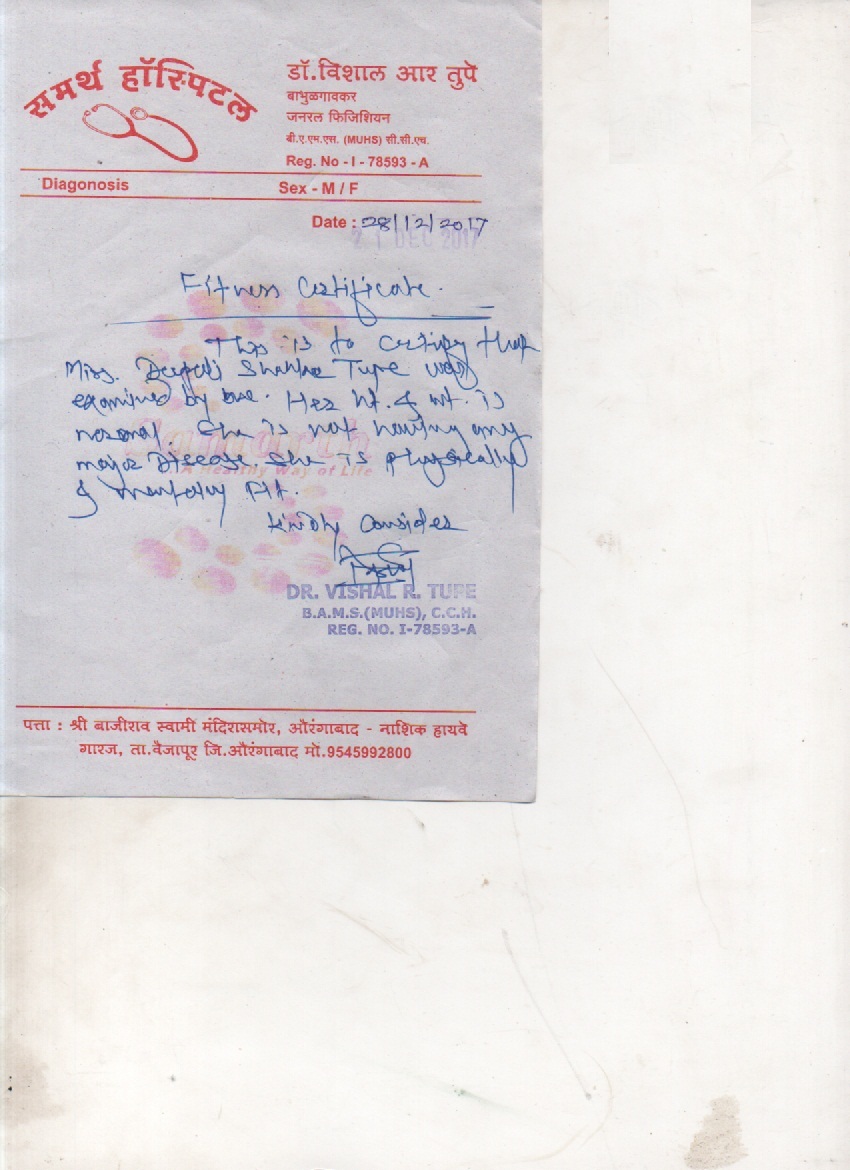 समर्थ हॉस्पिटल
डॉ.विशाल आर तुपे
बाभुळगावकर
जनरल फिजिशियन
बी.ए.एम.एस. (MUHS) सी.सी.एच.
Reg. No - I - 78593 - A
Diagonosis Sex - M / F
Date : 28/12/2017
21 DEC 2017
Fitness Certificate.
This is to certify that
Miss. Tupe was
examined by me. Her ht. & wt. is
normal. She is not having any
major Disease she is physically
& mentally Fit.
Samarth
A Healthy Way of Life
kindly consider
DR. VISHAL R. TUPE
B.A.M.S.(MUHS), C.C.H.
REG. NO. I-78593-A
पत्ता : श्री बाजीराव स्वामी मंदिरासमोर, औरंगाबाद - नाशिक हायवे
गारज, ता.वैजापूर जि.औरंगाबाद मॉ.9545992800